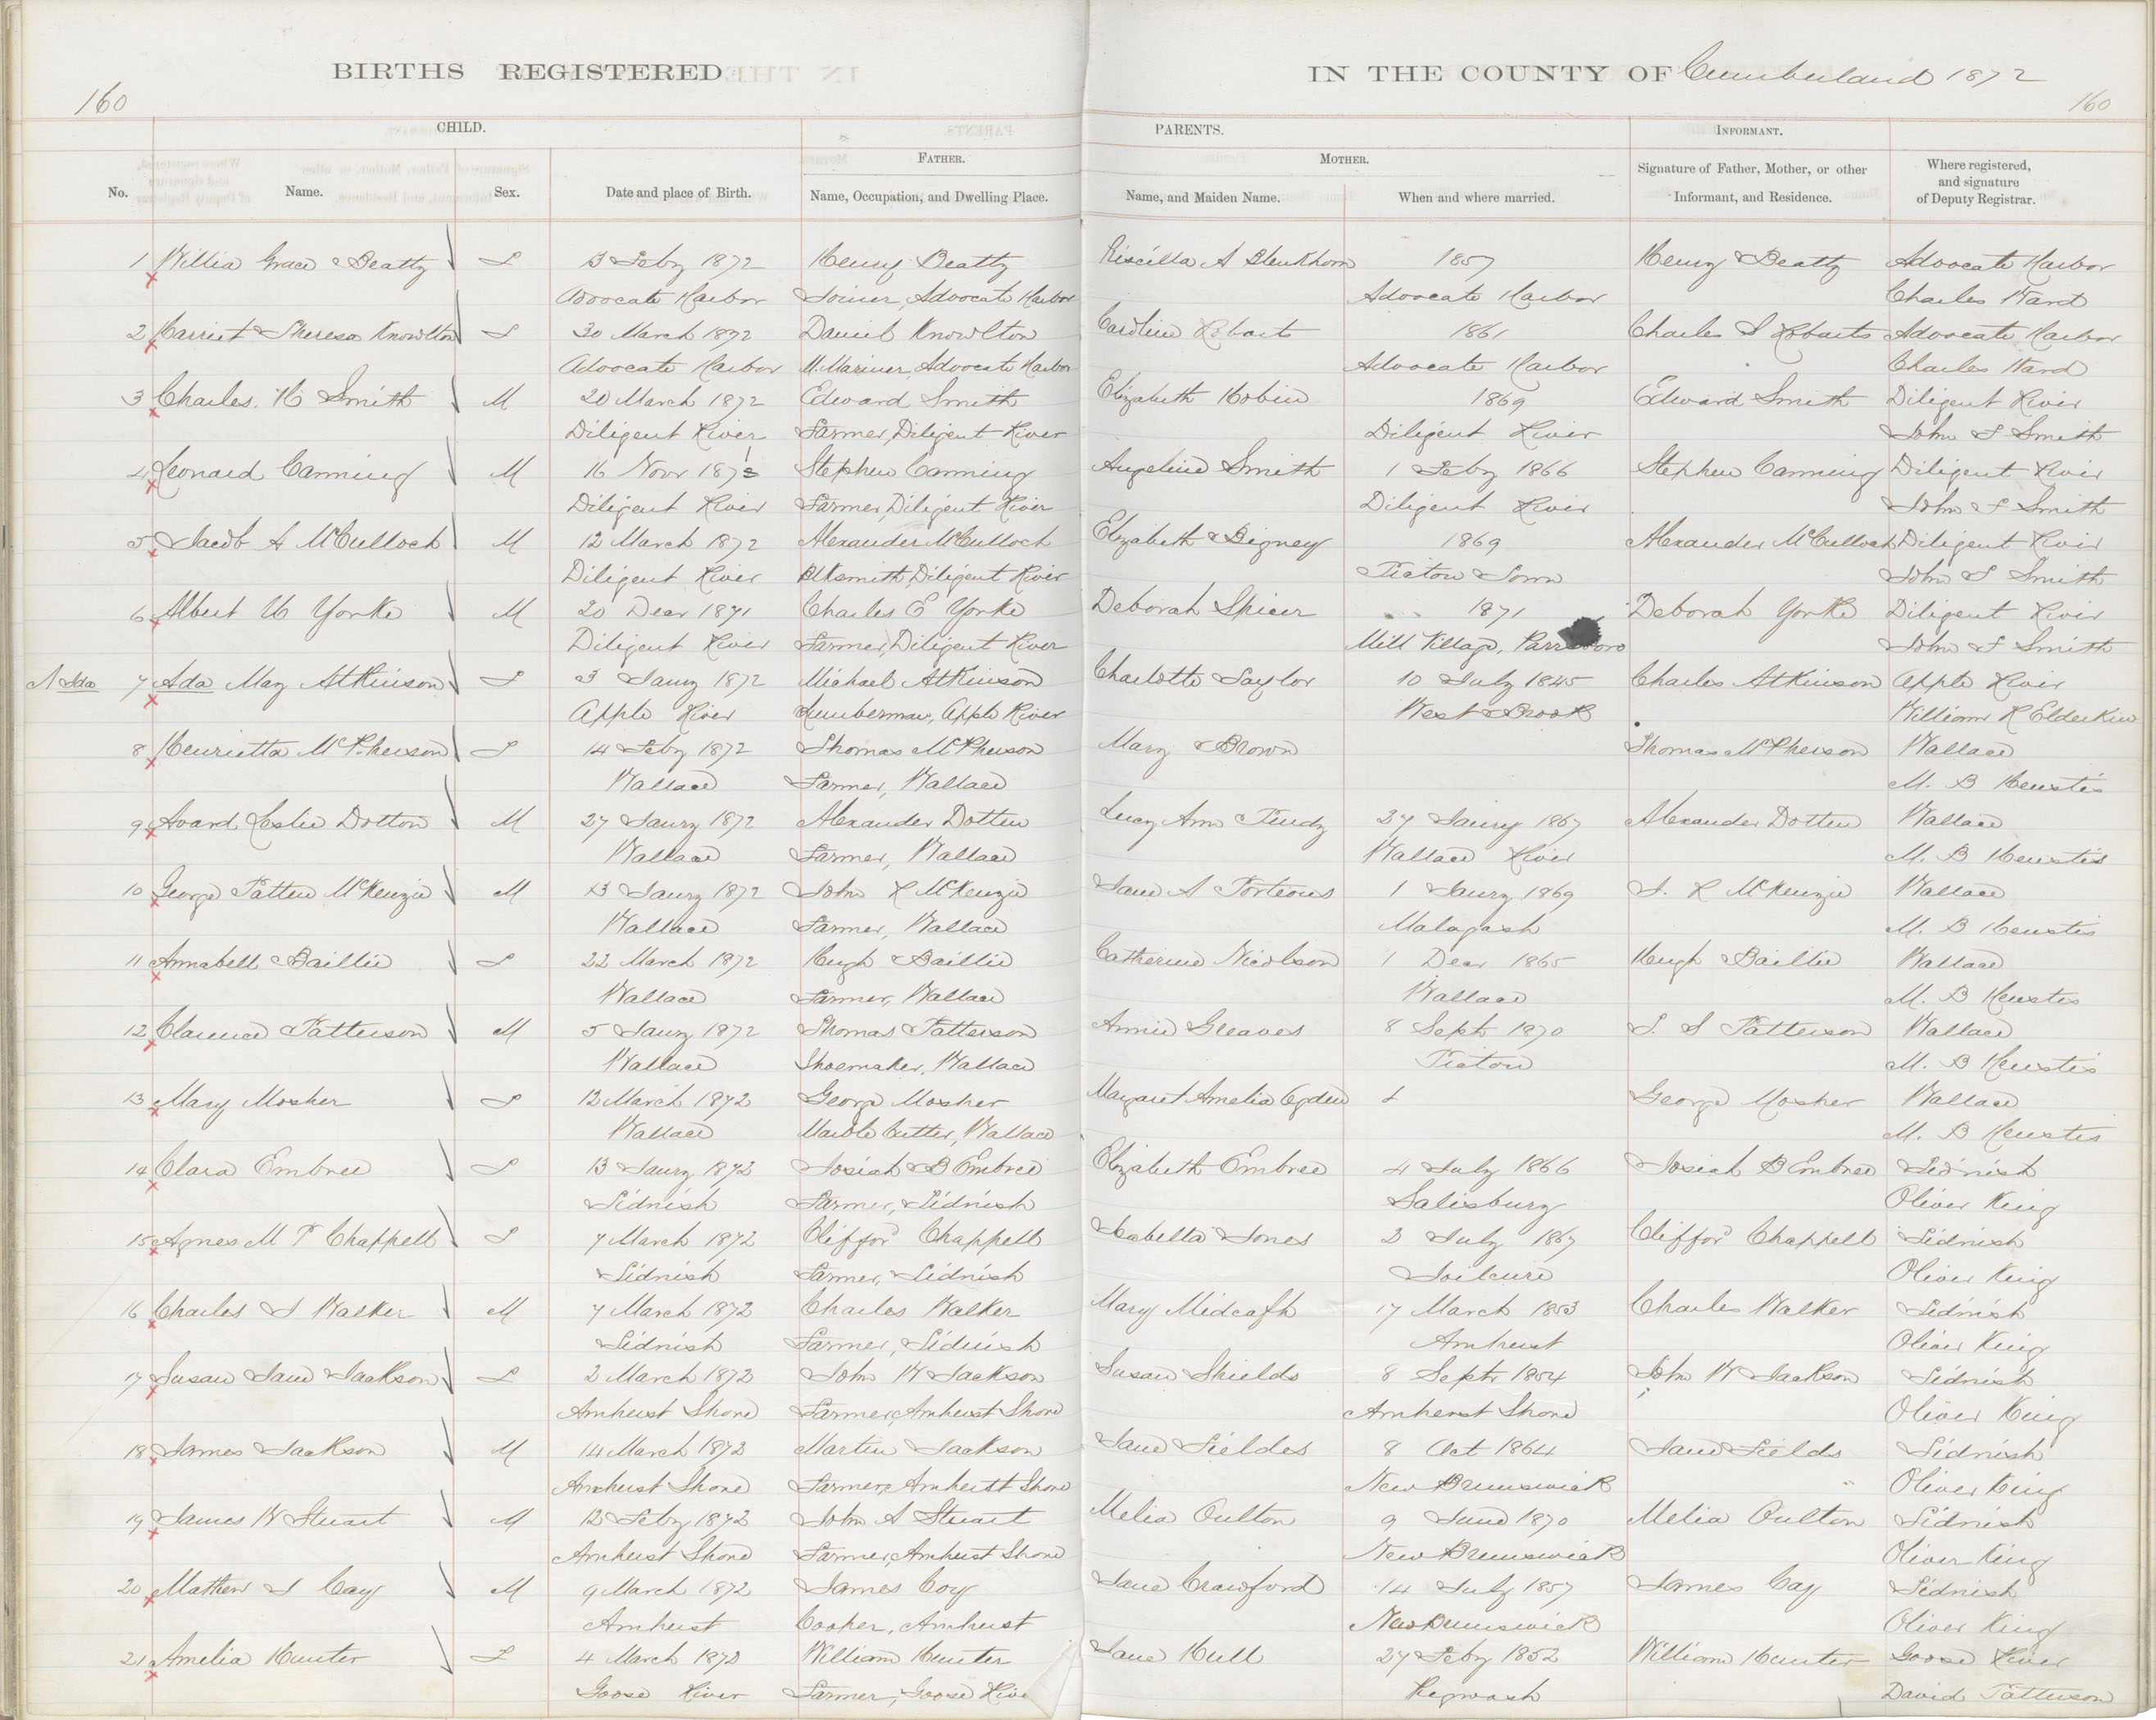 BIRTHS REGISTERED IN THE COUNTY OF Cumberland 1872
160 160
CHILD. PARENTS. INFORMANT.
FATHER. MOTHER.
No. Name. Sex. Date and place of Birth. Name, Occupation, and Dwelling Place. Name, and Maiden Name. When and where married. Signature of Father, Mother, or other Informant, and Residence. Where registered, and signature of Deputy Registrar.
1 Willia Grace Beatty F 13 Feby 1872 Henry Beatty Priscilla A Blenkhorn 1857 Henry Beatty Advocate Harbor
Advocate Harbor Joiner, Advocate Harbor Advocate Harbor Charles Ward
2 Harriet Theresa Knowlton F 30 March 1872 Daniel Knowlton Caroline Robarts 1861 Charles S Robarts Advocate Harbor
Advocate Harbor M. Mariner, Advocate Harbor Advocate Harbor Charles Ward
3 Charles H Smith M 20 March 1872 Edward Smith Elizabeth 1869 Edward Smith Diligent River
Diligent River Farmer, Diligent River Diligent River John S Smith
4 Leonard Canning M 16 Novr Stephen Canning Angeline Smith 1 Feby 1866 Stephen Canning Diligent River
Diligent River Farmer, Diligent River Diligent River John S Smith
5 Jacob A McCulloch M 12 March 1872 Alexander McCulloch Elizabeth Bigney 1869 Alexander McCulloch Diligent River
Diligent River Blksmith, Diligent River Pictou Town John S Smith
6 Albert W Yorke M 20 Decr 1871 Charles E Yorke Deborah Spicer 1871 Deborah Yorke Diligent River
Diligent River Farmer, Diligent River Mill Village, Parrsboro John S Smith
Ada 7 Ada May Atkinson F 3 Jany 1872 Michael Atkinson Charlotte Taylor 10 July 1845 Charles Atkinson Apple River
Apple River Lumberman, Apple River West Brook William R Elderkin
8 Henrietta McPherson F 14 Feby 1872 Thomas McPherson Mary Brown Thomas McPherson Wallace
Wallace Farmer, Wallace M. B Heustis
9 Avard Leslie Dotten M 27 Jany 1872 Alexander Dotten Lucy Ann 27 Jany 1867 Alexander Dotten Wallace
Wallace Farmer, Wallace Wallace River M. B Heustis
10 George Patten McKenzie M 13 Jany 1872 John R McKenzie Jane A Porteous 1 Jany 1869 J. R McKenzie Wallace
Wallace Farmer, Wallace Malagash M. B Heustis
11 Annabell Baillie F 22 March 1872 Hugh Baillie Catherine Nicolson 1 Decr 1865 Hugh Baillie Wallace
Wallace Farmer, Wallace Wallace M. B Heustis
12 Clarence Patterson M 5 Jany 1872 Thomas Patterson Annie Greaves 8 Sept 1870 T. S Patterson Wallace
Wallace Shoemaker, Wallace Pictou M. B Heustis
13 Mary Mosher F 12 March 1872 George Mosher Margaret Amelia Ogden George Mosher Wallace
Wallace Marble Cutter, Wallace M. B Heustis
14 Clara Embree F 13 Jany 1872 Josiah B Embree Elizabeth Embree 4 July 1866 Josiah B Embree Tidnish
Tidnish Farmer, Tidnish Salisbury Oliver King
15 Agnes M T Chappell F 7 March 1872 Cliffor Chappell Isabella Jones 2 July 1867 Cliffor Chappell Tidnish
Tidnish Farmer, Tidnish Oliver King
16 Charles S Walker M 7 March 1872 Charles Walker Mary 17 March 1853 Charles Walker Tidnish
Tidnish Farmer, Tidnish Amherst Oliver King
17 Susan Jane Jackson F 2 March 1872 John W Jackson Susan Shields 8 Septr 1854 John W Jackson Tidnish
Amherst Shore Farmer, Amherst Shore Amherst Shore Oliver King
18 James Jackson M 14 March 1872 Martin Jackson Jane Fieldes 8 Oct 1864 Jane Fields Tidnish
Amherst Shore Farmer, Amherst Shore New Brunswick Oliver King
19 James W Stuart M 12 Feby 1872 John A Stuart Melia Oulton 9 June 1870 Melia Oulton Tidnish
Amherst Shore Farmer, Amherst Shore New Brunswick Oliver King
20 Mathew S Cay M 9 March 1872 James Coy Jane Crawford 14 July 1857 James Cay Tidnish
Amherst Cooper, Amherst New Brunswick Oliver King
21 Amelia Hunter F 4 March 1872 William Hunter Jane Hull 27 Feby 1852 William Hunter Goose River
Goose River Farmer, Goose Rive Pugwash David Patterson